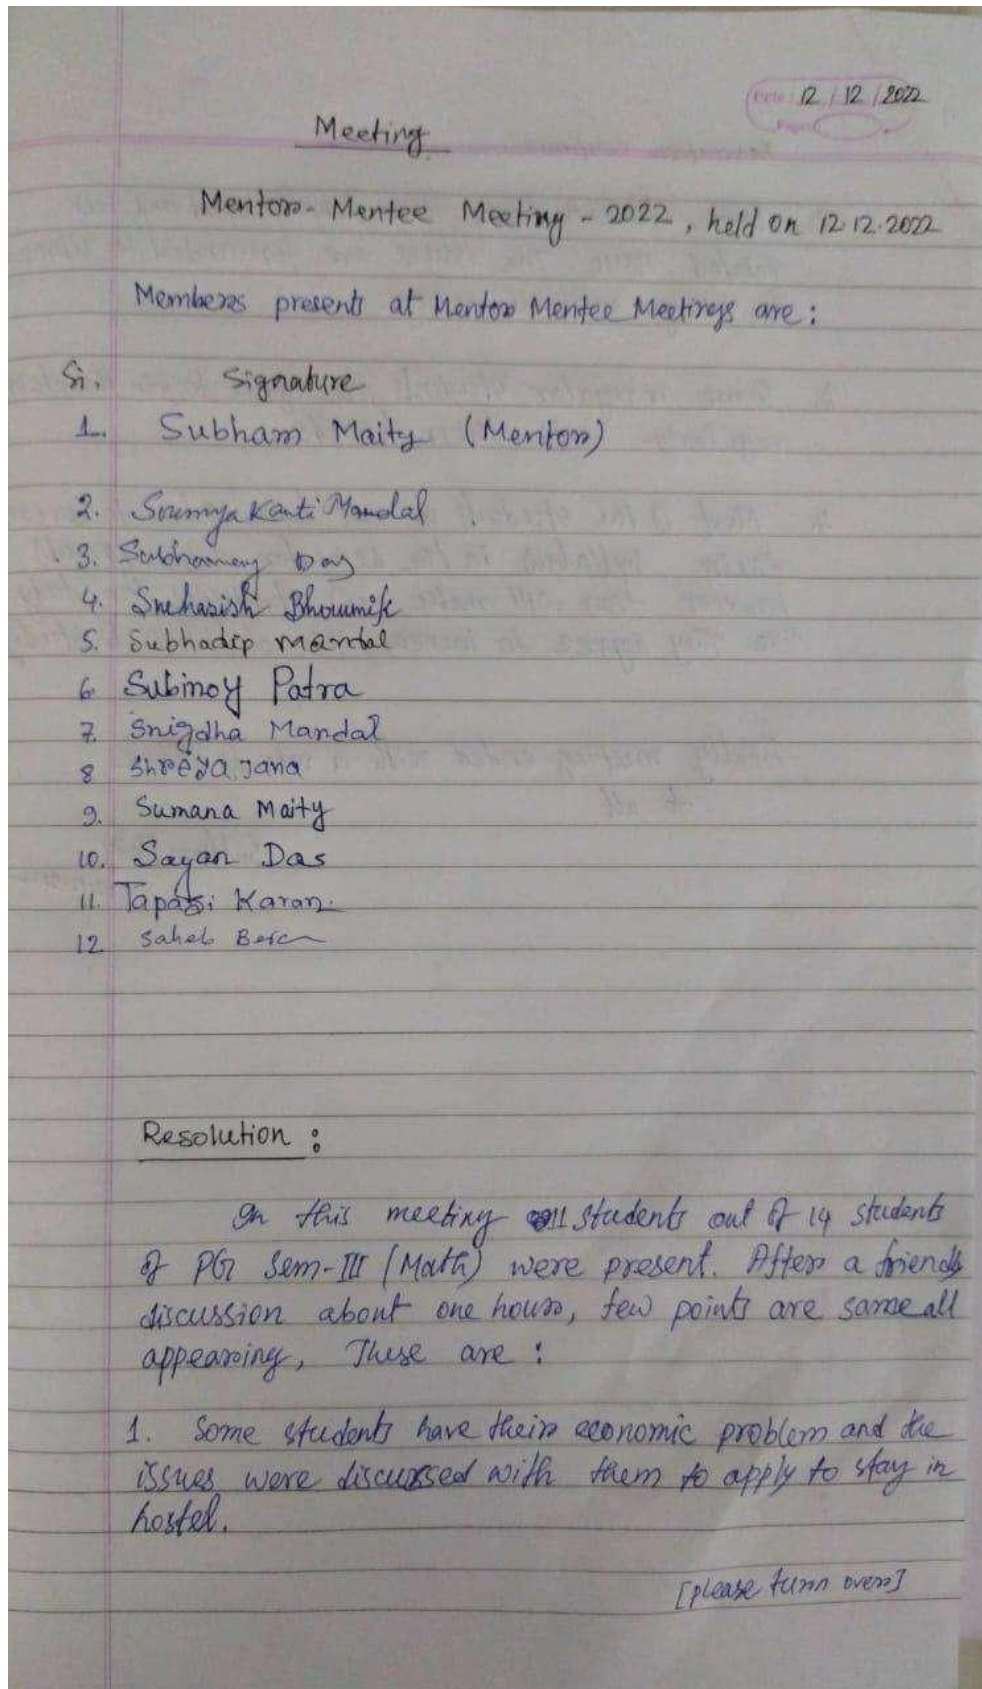 Date 12 / 12 / 2022
Page
Meeting
Mentor-Mentee Meeting - 2022, held on 12.12.2022
Members presents at Mentor Mentee Meetings are :
Sl. Signature
1. Subham Maity (Mentor)
2. Soumya Kanti Mandal
3. Subhamoy Das
4. Snehasish Bhowmik
5. Subhadip Mandal
6. Subinoy Patra
7. Snigdha Mandal
8 Shreya Jana
9. Sumana Maity
10. Sayan Das
11. Tapasi Karan.
12 Saheb Bera
Resolution :
In this meeting 11 students out of 14 students
of PG Sem-III (Math) were present. After a friends
discussion about one hour, few points are same all
appearing, These are :
1. Some students have their economic problem and the
issues were discussed with them to apply to stay in
hostel.
[please turn over]